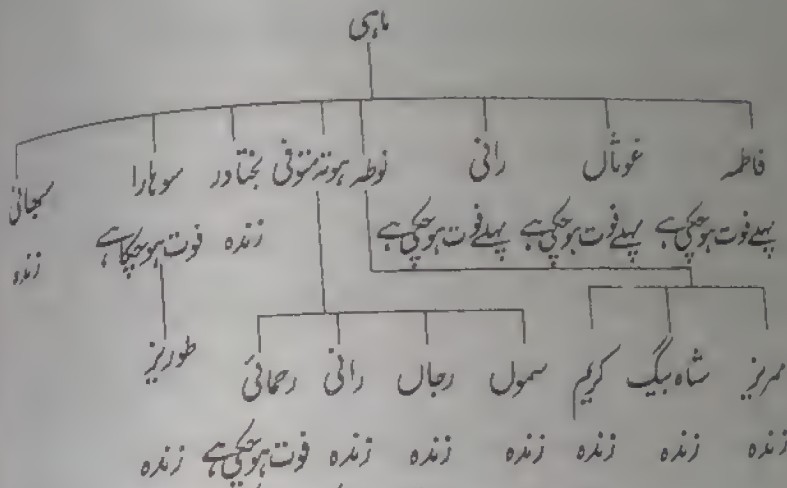 ماہی
فاطمہ غوثاں رانی نوطہ ہوتہ متوفی بختاور سوہارا سبحانی
پہلے فوت ہوچکی ہے پہلے فوت ہوچکی ہے پہلے فوت ہوچکی ہے زندہ فوت ہوچکا ہے زندہ
مہریز شاہ بیگ کریم سمول رجاں رانی رحمائی طوریز
زندہ زندہ زندہ زندہ زندہ زندہ فوت ہوچکی ہے زندہ